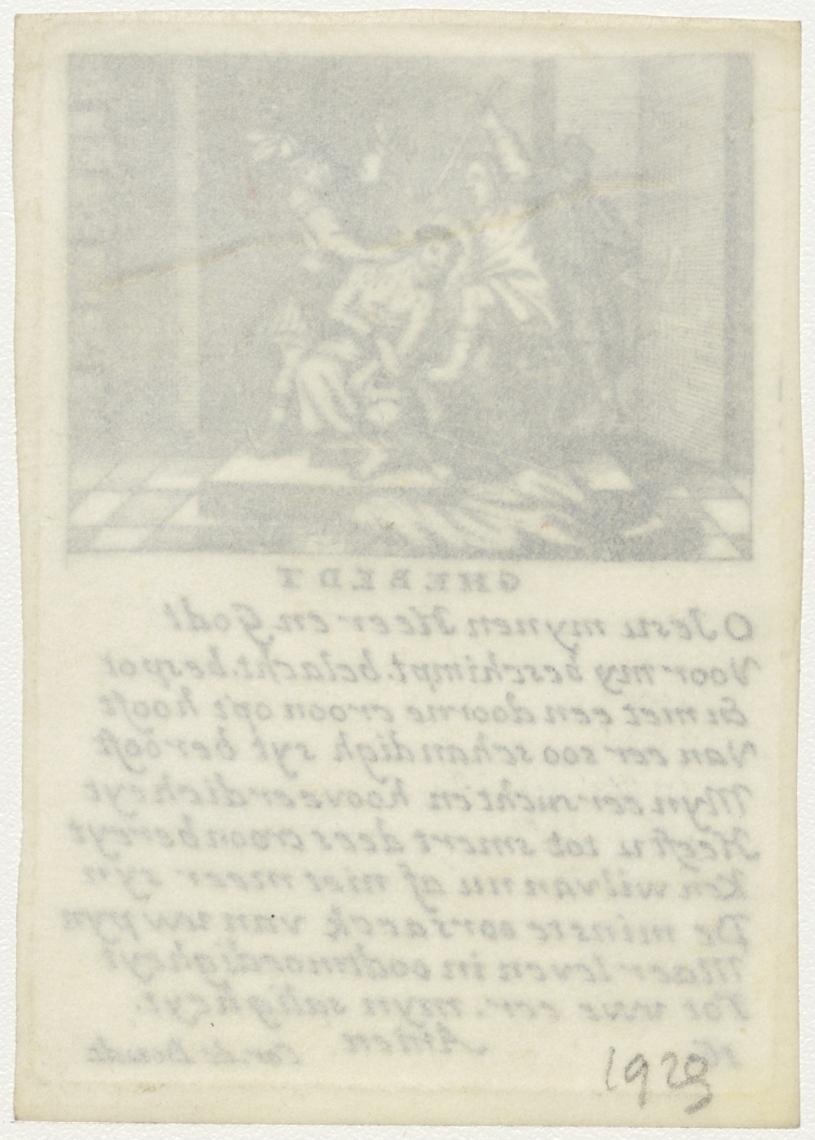 GHEBEDT
O Jesu mynen Heer en Godt
Voor my beschimpt, belacht, bespot
En met een doorne croon opt hooft
Van eer soo schandigh syt berooft
Myn eersucht en hooveerdicheyt
Heeft u tot smert dees croon bereyt
Ken wil van nu af niet meer syn
De minste oorsaeck van uw pyn
Maer leven in oodtmoedigheyt
Tot uwe eer, myn saligheyt.
Amen
Cor. de Boudt
1929